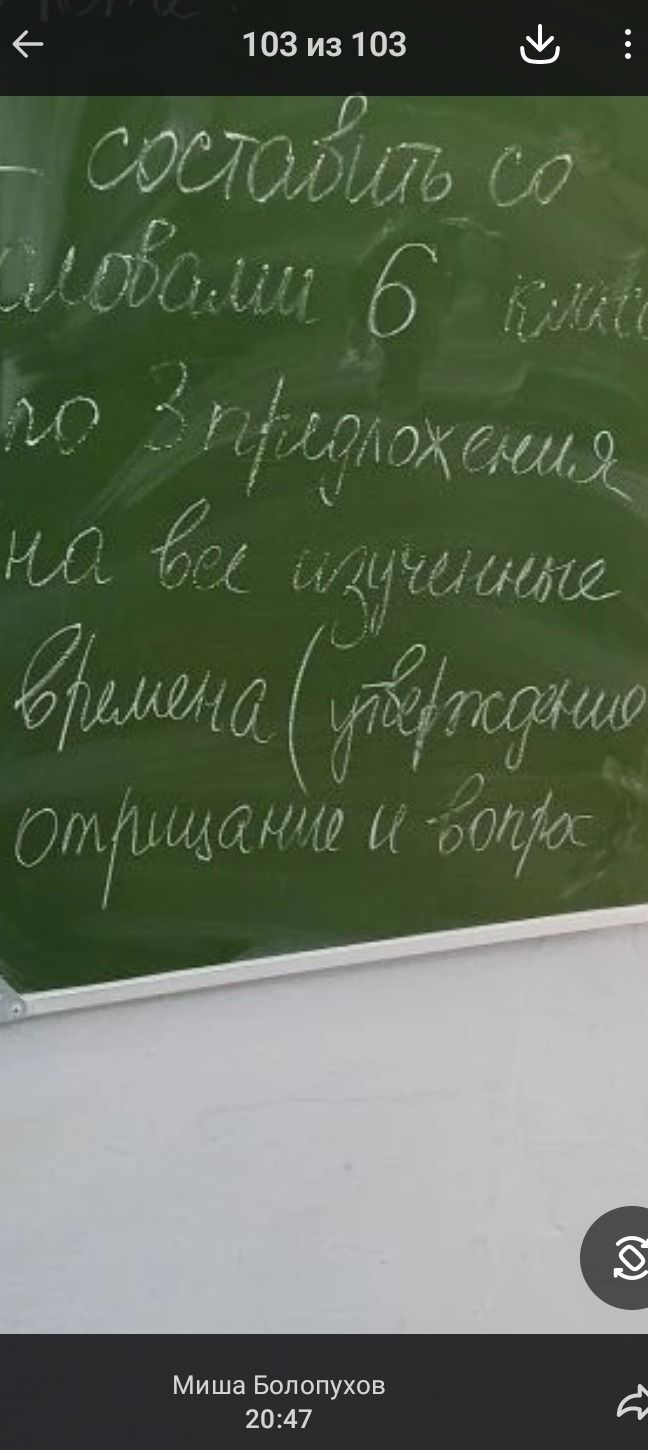 103 из 103
- составить со
словами 6 класс
по 3 предложения
на все изученные
времена (утверждение
отрицание и вопрос
Миша Болопухов
20:47